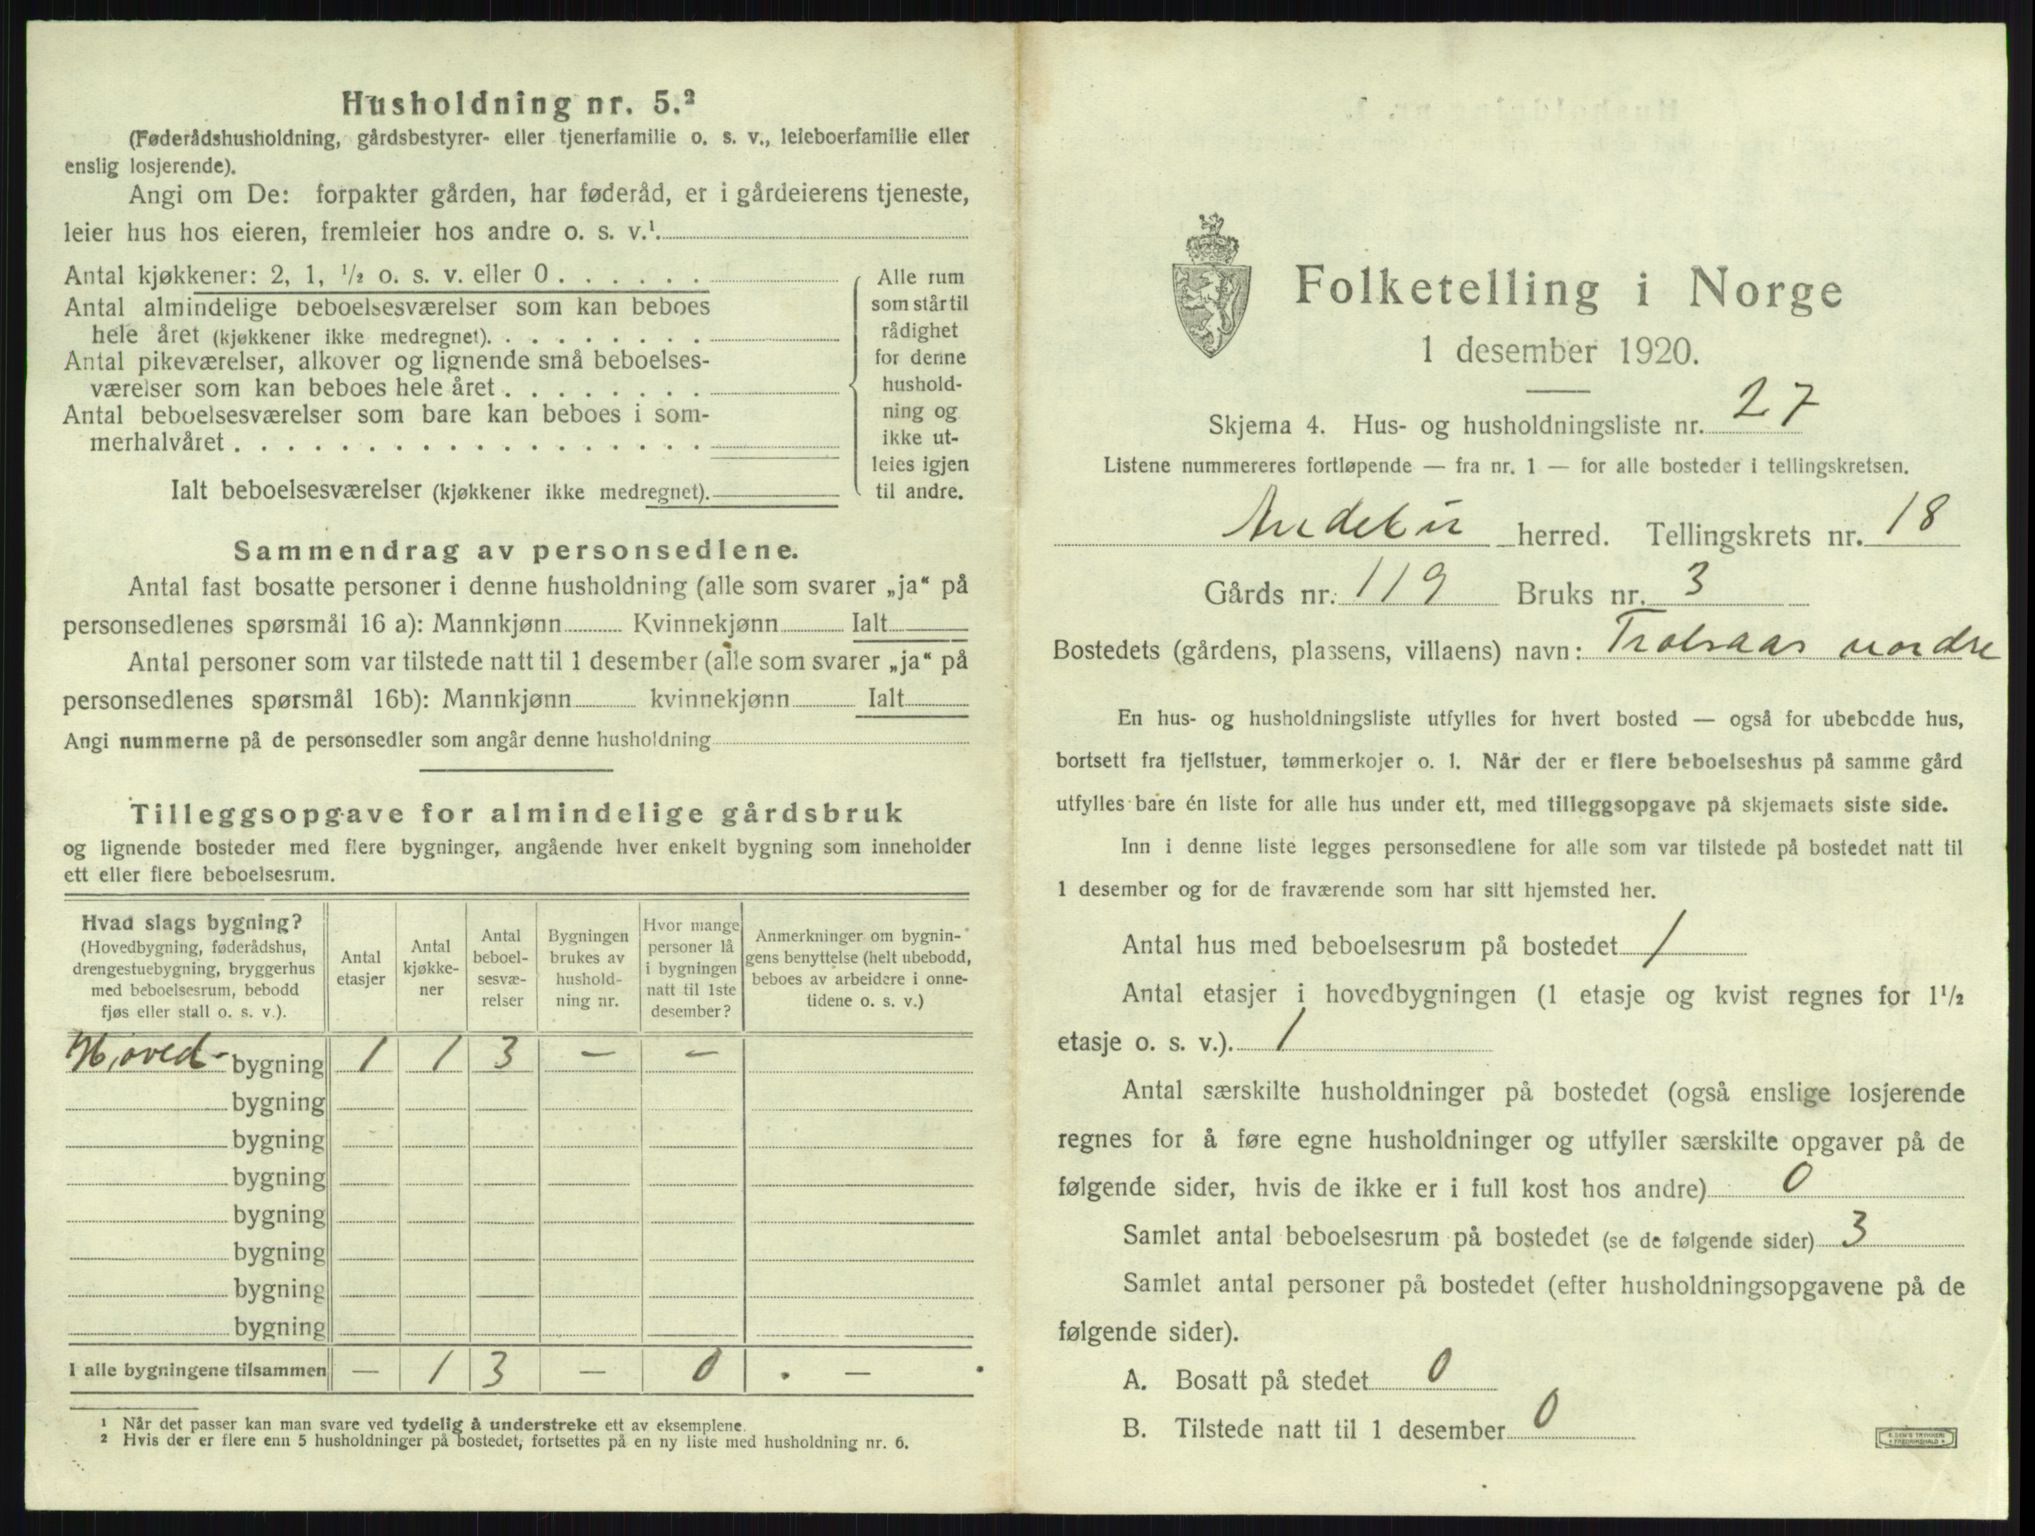 Husholdning nr. 5.²
(Føderådshusholdning, gårdsbestyrer- eller tjenerfamilie o. s. v., leieboerfamilie eller
enslig losjerende).
Angi om De: forpakter gården, har føderåd, er i gårdeierens tjeneste,
leier hus hos eieren, fremleier hos andre o. s. v.¹
Antal kjøkkener: 2, 1, ½ o. s. v. eller 0 . . . . . .
Antal almindelige beboelsesværelser som kan beboes
hele året (kjøkkener ikke medregnet). . . . . . . . .
Antal pikeværelser, alkover og lignende små beboelses-
værelser som kan beboes hele året . . . . . . . .
Antal beboelsesværelser som bare kan beboes i som-
merhalvåret . . . . . . . . . . . . . . . . . .
Ialt beboelsesværelser (kjøkkener ikke medregnet).
Alle rum
som står til
rådighet
for denne
hushold-
ning og
ikke ut-
leies igjen
til andre.
Sammendrag av personsedlene.
Antal fast bosatte personer i denne husholdning (alle som svarer „ja“ på
personsedlenes spørsmål 16 a): Mannkjønn Kvinnekjønn Ialt
Antal personer som var tilstede natt til 1 desember (alle som svarer „ja“ på
personsedlenes spørsmål 16b): Mannkjønn kvinnekjønn Ialt
Angi nummerne på de personsedler som angår denne husholdning
Tilleggsopgave for almindelige gårdsbruk
og lignende bosteder med flere bygninger, angående hver enkelt bygning som inneholder
ett eller flere beboelsesrum.
Hvad slags bygning?
(Hovedbygning, føderådshus,
drengestuebygning, bryggerhus
med beboelsesrum, bebodd
fjøs eller stall o. s. v.).
Antal
etasjer
Antal
kjøkke-
ner
Antal
beboel-
sesvæ-
relser
Bygningen
brukes av
hushold-
ning nr.
Hvor mange
personer lå
i bygningen
natt til 1ste
desember?
Anmerkninger om bygnin-
gens benyttelse (helt ubebodd,
beboes av arbeidere i onne-
tidene o. s. v.)
Hoved- bygning 1 1 3 — —
bygning
bygning
bygning
bygning
bygning
bygning
bygning
I alle bygningene tilsammen — 1 3 — 0 . —
¹ Når det passer kan man svare ved tydelig å understreke ett av eksemplene.
² Hvis der er flere enn 5 husholdninger på bostedet, fortsettes på en ny liste med husholdning nr. 6.
Folketelling i Norge
1 desember 1920.
Skjema 4. Hus- og husholdningsliste nr. 27
Listene nummereres fortløpende — fra nr. 1 — for alle bosteder i tellingskretsen.
Andebu herred. Tellingskrets nr. 18
Gårds nr. 119 Bruks nr. 3
Bostedets (gårdens, plassens, villaens) navn: Trolsaas nordre
En hus- og husholdningsliste utfylles for hvert bosted — også for ubebodde hus,
bortsett fra fjellstuer, tømmerkojer o. l. Når der er flere beboelseshus på samme gård
utfylles bare én liste for alle hus under ett, med tilleggsopgave på skjemaets siste side.
Inn i denne liste legges personsedlene for alle som var tilstede på bostedet natt til
1 desember og for de fraværende som har sitt hjemsted her.
Antal hus med beboelsesrum på bostedet 1
Antal etasjer i hovedbygningen (1 etasje og kvist regnes for 1½
etasje o. s. v.). 1
Antal særskilte husholdninger på bostedet (også enslige losjerende
regnes for å føre egne husholdninger og utfyller særskilte opgaver på de
følgende sider, hvis de ikke er i full kost hos andre) 0
Samlet antal beboelsesrum på bostedet (se de følgende sider) 3
Samlet antal personer på bostedet (efter husholdningsopgavene på de
følgende sider).
A. Bosatt på stedet 0
B. Tilstede natt til 1 desember 0